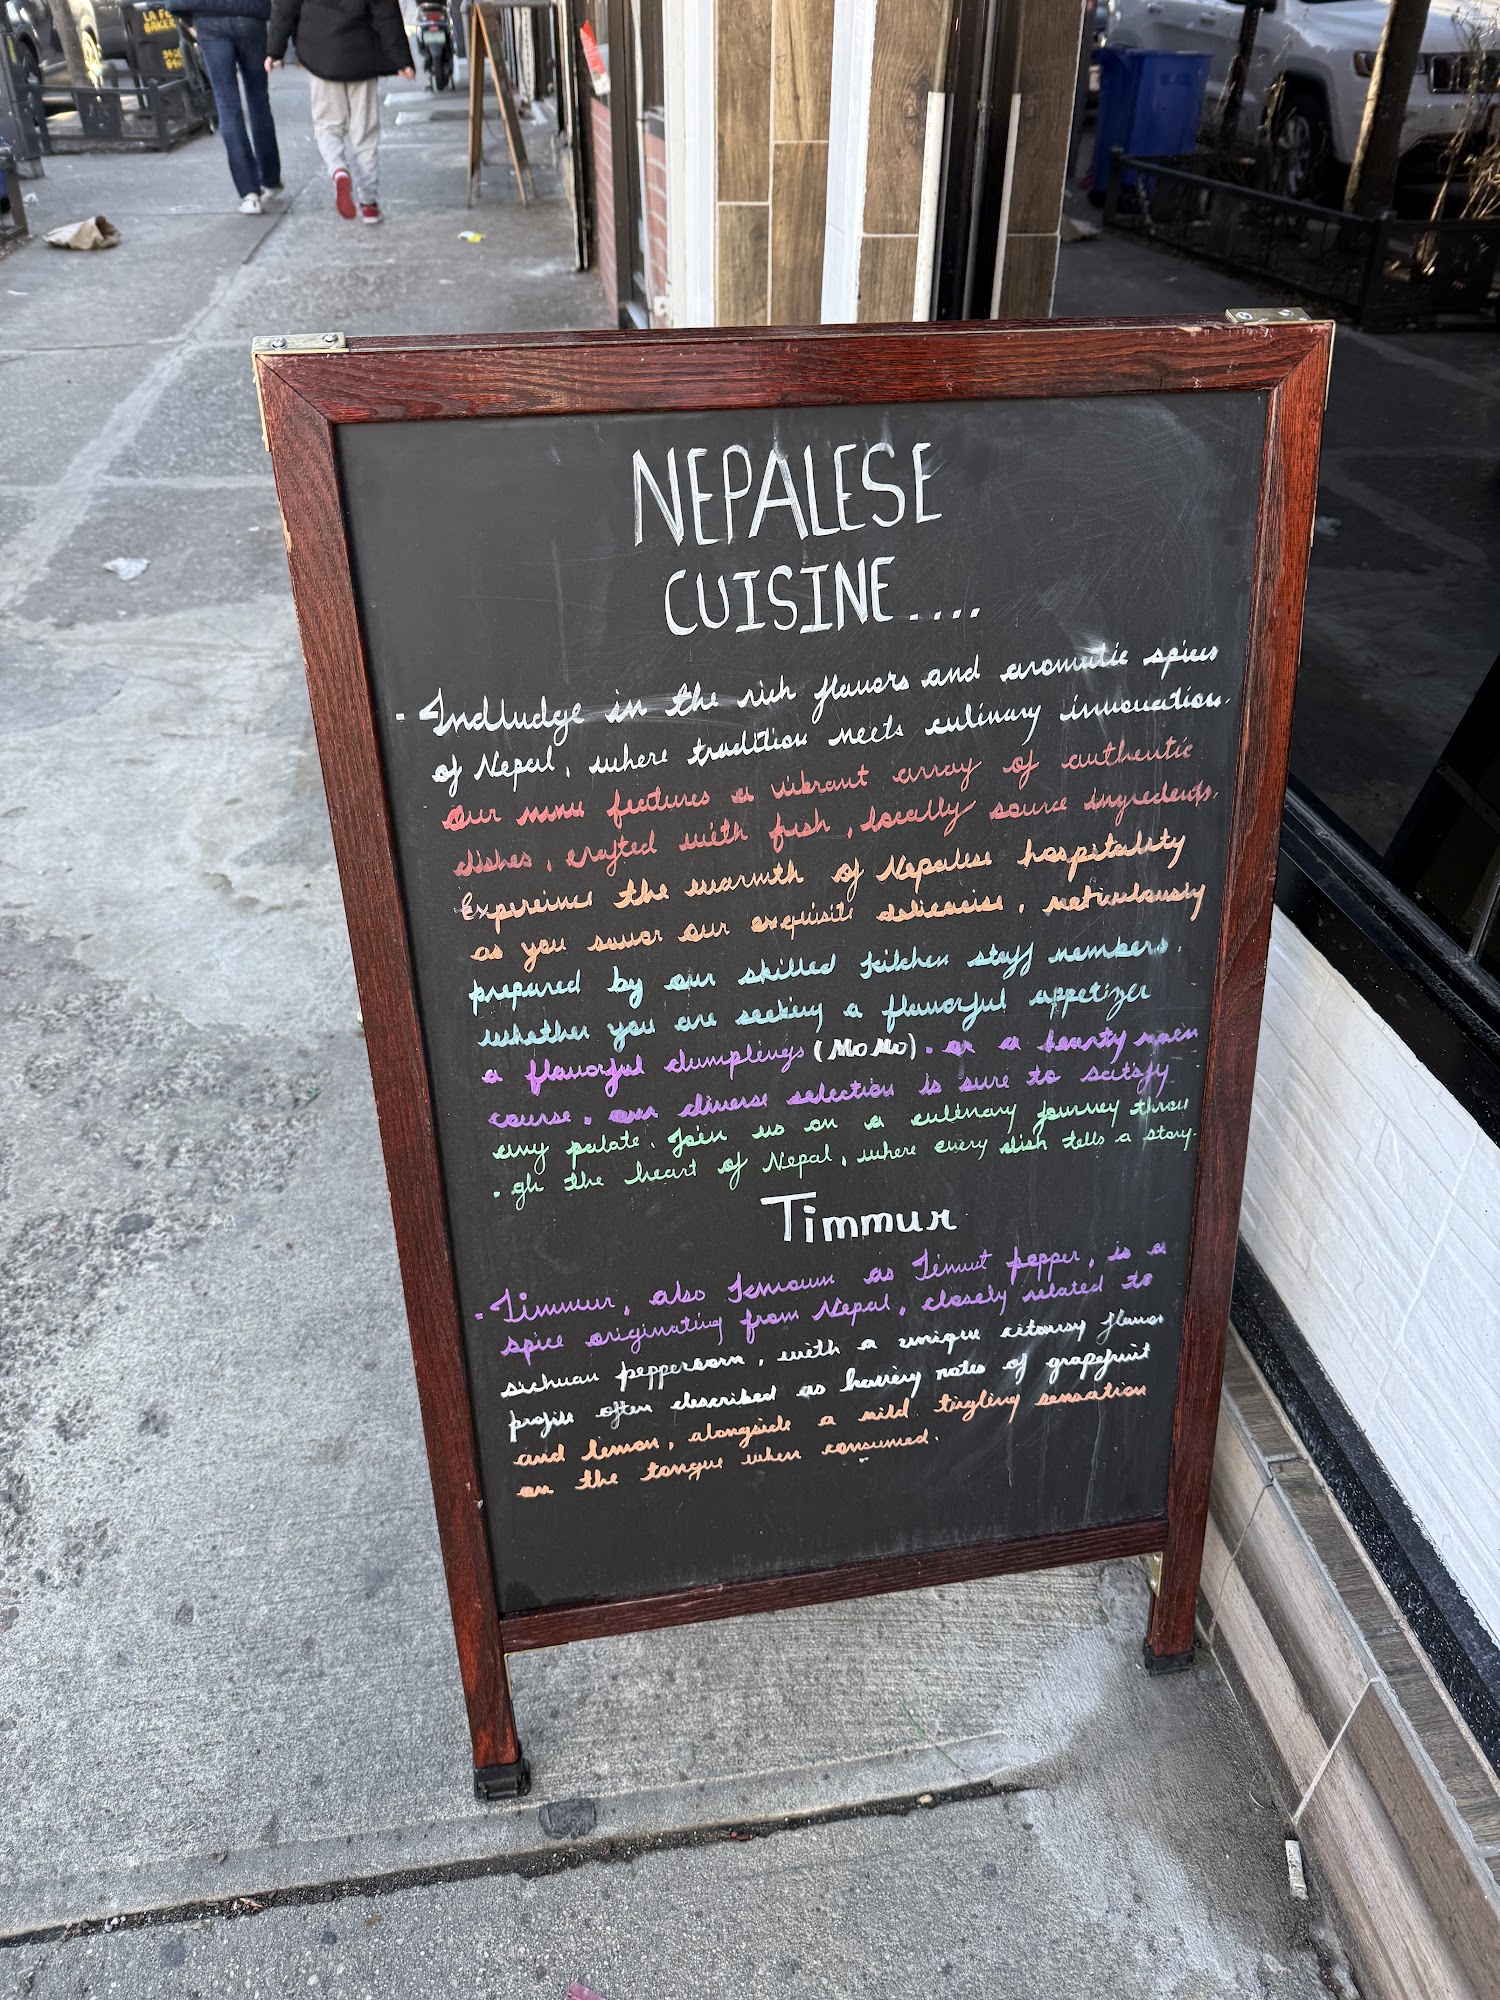 LA F
BAKER
NEPALESE
CUISINE....
- Indludge in the rich flavors and aromatic spices
of Nepal, where tradition meets culinary innovation.
Our menu features a vibrant array of authentic
dishes, crafted with fresh, locally source ingredients.
Expereince the warmth of Nepalese hospitality
as you savor our exquisite delicacise, meticulously
prepared by our skilled kitchen staff members.
whether you are seeking a flavorful appetizer
a flavorful dumplings (MoMo). or a hearty main
course, our diverse selection is sure to satisfy
every palate. Join us on a culinary journey throu
. gh the heart of Nepal, where every dish tells a story.
Timmur
- Timmur, also known as Timut pepper, is a
spice originating from Nepal, closely related to
sichuan peppercorn, with a unique citrusy flavor
profile often described as having notes of grapefruit
and lemon, alongside a mild tingling sensation
on the tongue when consumed.